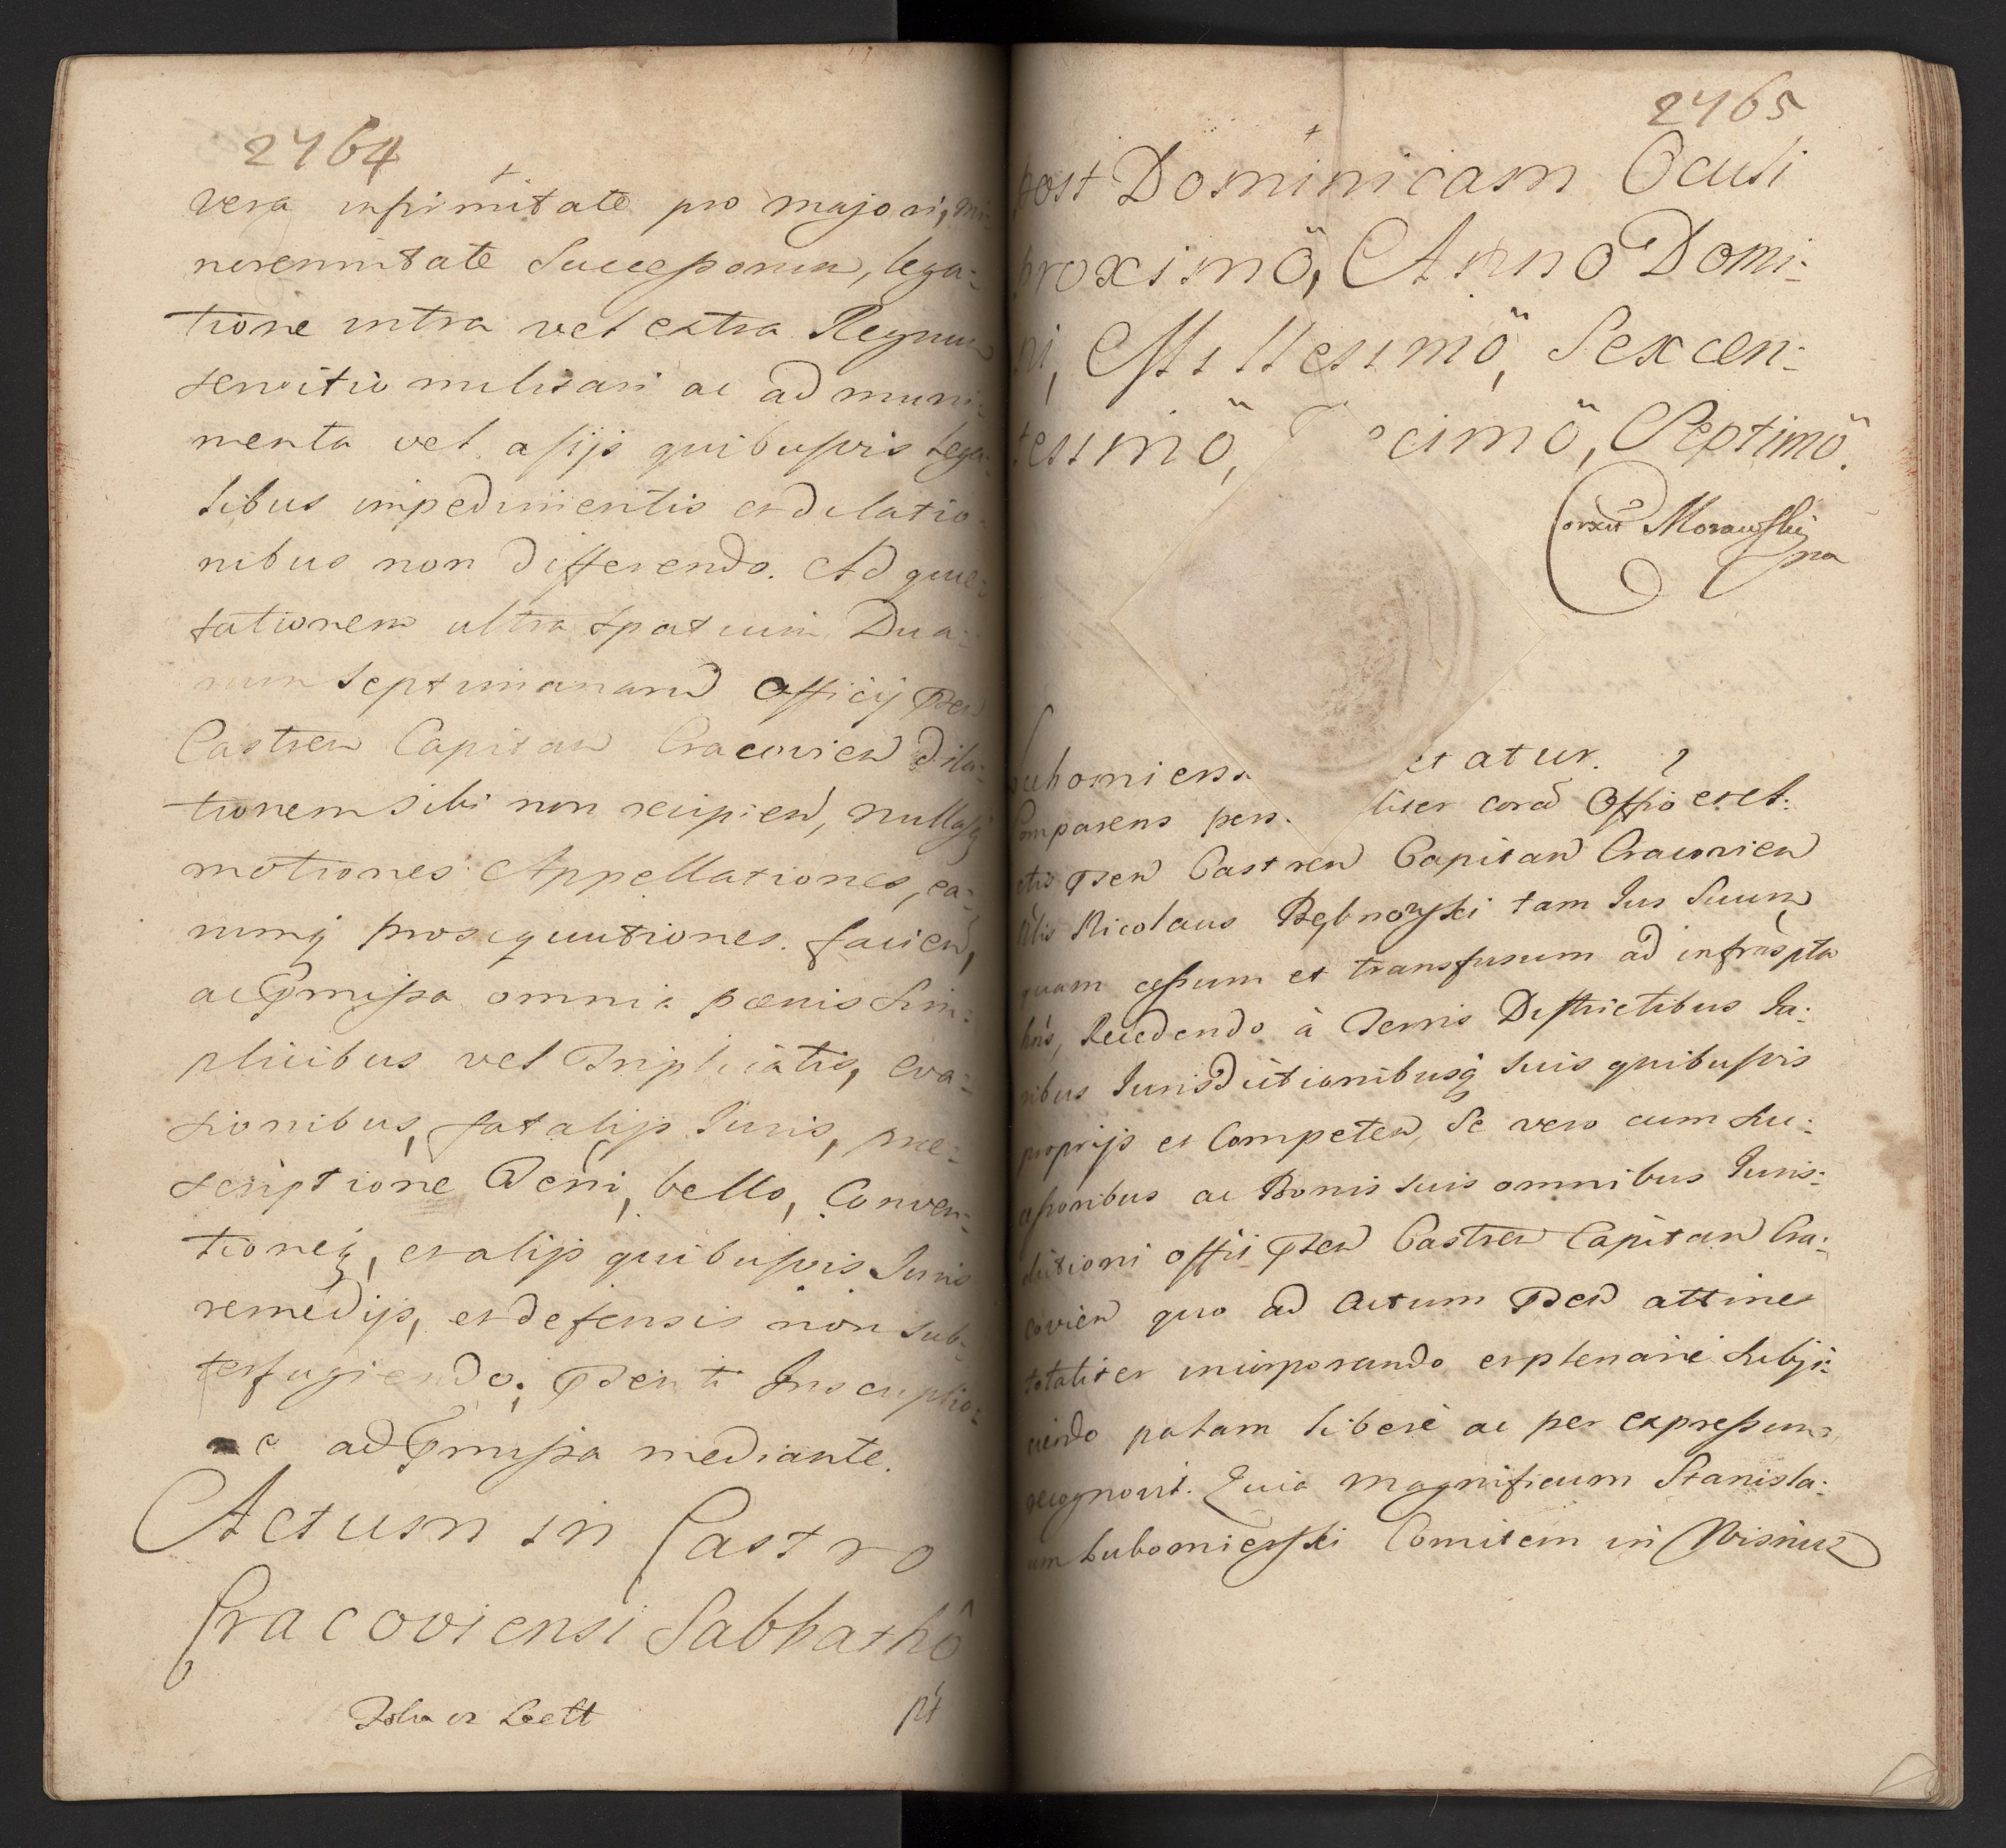 2764
vera infirmitate pro majori, mi-
norennitate Successorum, lega-
tione intra vel extra Regnum
servitio militari ac ad muni-
menta vel alijs quibusvis lega-
libus impedimentis et dilatio-
nibus non differendo. Ad quie-
tationem ultra spatium Dua-
rum Septimanarũ Officij Pñen
Castren Capitan Cracovien dila-
tionem sibi non recipien, nullasq
motiones Appellationes, ea-
rumq prosequutiones facien,
ac Pmissa omnia pœnis Sim-
plicibus vel Triplicatis, eva-
sionibus, fatalijs Iuris, præ-
scriptione Terri, bello, Conven-
tioneq, et alijs quibusvis Iuris
remedijs, et defensis non sub-
terfugiendo; Pñenti Inscriptio-
ne ad Pmissa mediante.
Actum in Castro
Cracoviensi Sabbathô
pt
2765
post Dominicam Oculi
proximô, Anno Domi-
ni, Millesimô, Sexcen-
tesimô, cimô, Septimô.
Correxit Morawski
mp
Lubomiers etatur.
Comparens pers liter corã Offio et ct:
ctis Pñen Castren Capitan Cracovien
Nicolaus Rębnowski tam Ius Suum
quam cessum et transfusum ad infrascpta
hñs, Recedendo à Terris Districtibus Iu-
ribus Iurisdictionibusq Suis quibusvis
proprijs et Competen, Se vero cum Suc-
cessoribus ac Bonis suis omnibus Iuris-
dictioni Offij Pñen Castren Capitan Cra-
covien quo ad Actum Pñen attinet
totaliter incorporando et plenarie Subji-
ciendo palam libere ac per expressum
recognovit. Quia Magnificum Stanisla-
um Lubomierski Comitem in Wisnicz